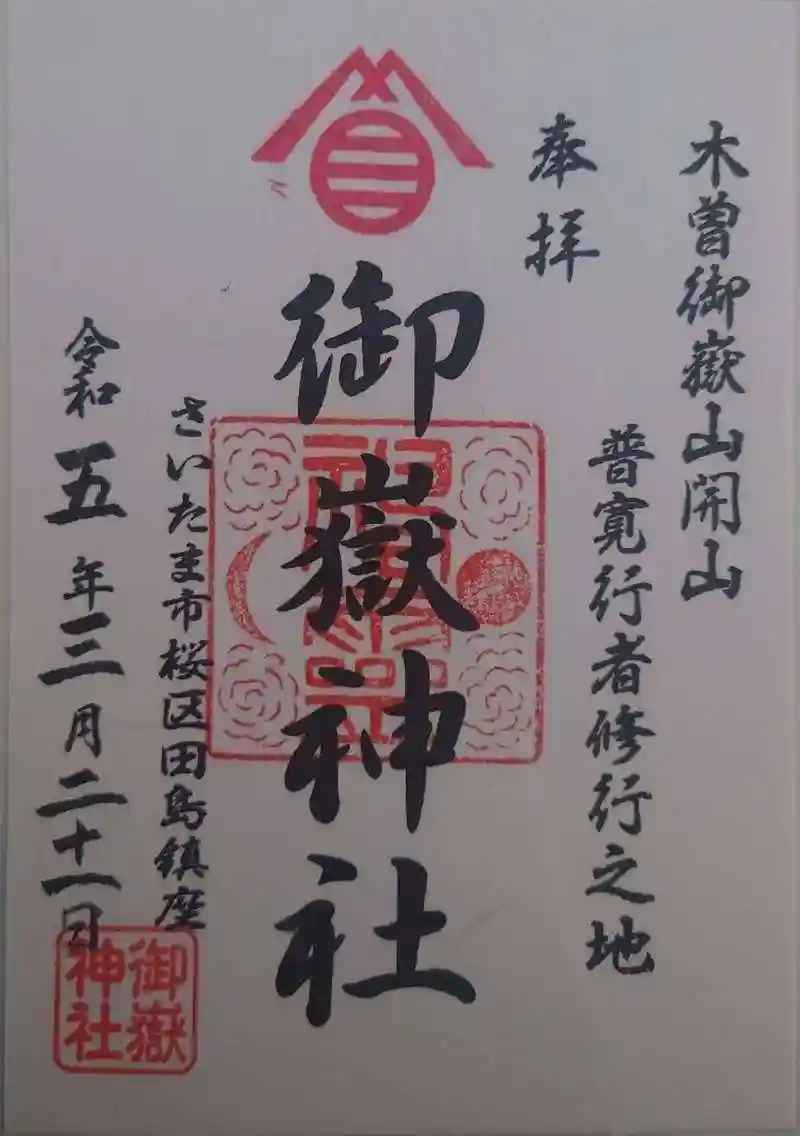 木曽御嶽山開山
普寛行者修行之地
奉拝
御嶽神社
さいたま市桜区田島鎮座
令和五年三月二十一日
御嶽
神社